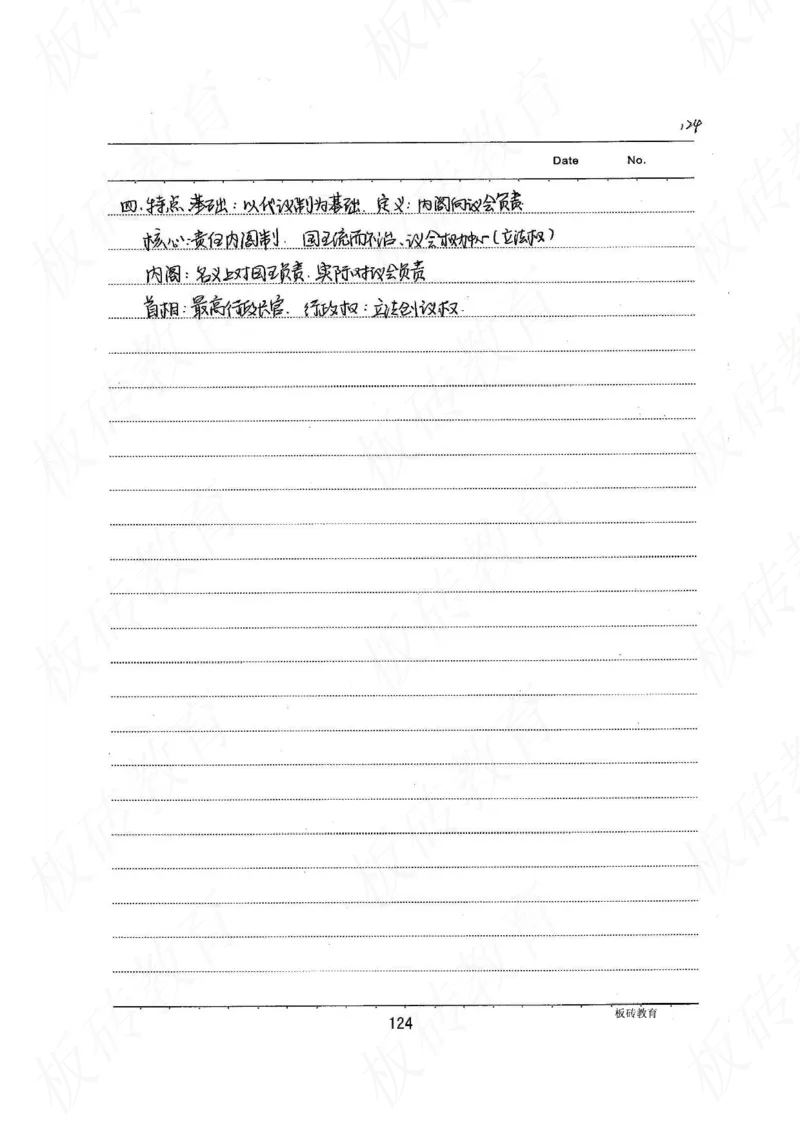 124
Date No.
四.特点.基础:以代议制为基础. 定义:内阁向议会负责
核心:责任内阁制. 国王统而不治、议会权力中心(立法权)
内阁:名义上对国王负责.实际对议会负责
首相:最高行政长官. 行政权:立法创议权.
板砖教育
124